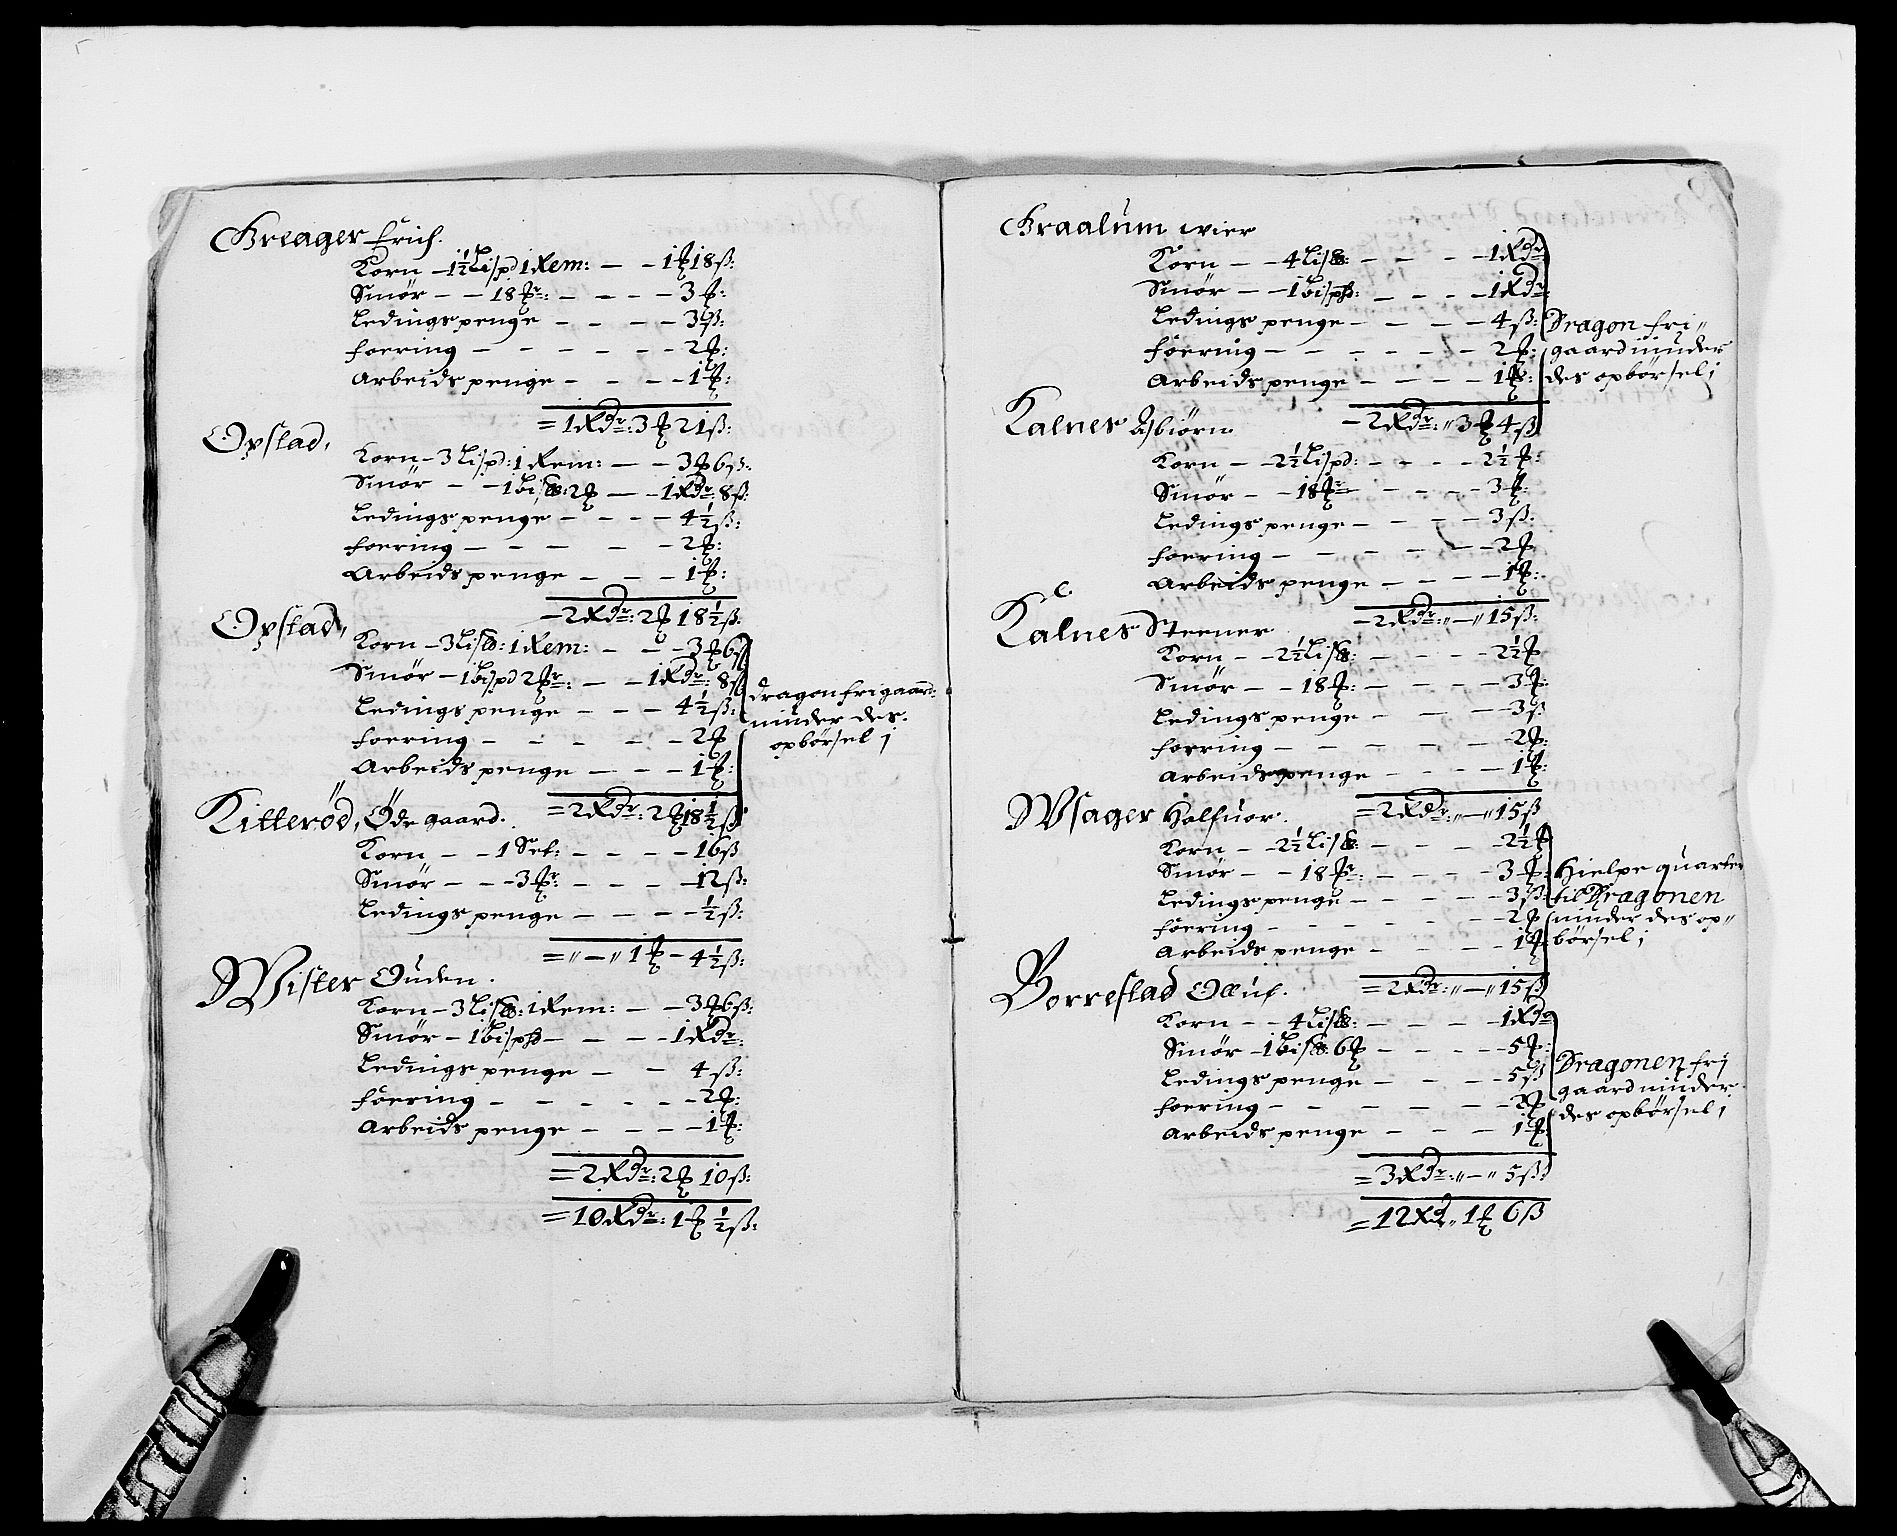 Greager Erich.
Korn - 1½ Lispd 1 Rem: - - 1 ₰ 18 ß:
Smör - - 18 ₰r: - - - 3 ₰:
Ledings penge - - - - 3 ß:
foering - - - - - - 2 ₰:
Arbeids penge - - - - 1 ₰:
= 1 Rdr: 3 ₰ 21 ß:
Opstad,
Korn - 3 Lispd: 1 Rem: - - 3 ₰ 6 ß:
Smör - - 1 bis℔: 2 ₰ - - 1 Rdr: 8 ß:
Ledings penge - - - - 4½ ß:
foering - - - - - 2 ₰:
Arbeids penge - - - 1 ₰:
- 2 Rdr: 2 ₰ 18½ ß:
Opstad,
Korn - 3 Lis℔: 1 Rem: - - - 3 ₰ 6 ß
Smör - 1 bispd 2 ₰r: - - 1 Rdr: 8 ß
Ledings penge - - - 4½ ß:
foering - - - - - 2 ₰
Arbeids penge - - - 1 ₰:
dragon frigaard:
ninder des.
opbörsel j
= 2 Rdr: 2 ₰ 18½ ß
Kitteröd, Öde gaard.
Korn - - 1 Set: - - - - 16 ß
Smör - - - 3 ₰r: - - - - 12 ß:
Ledings penge - - - - ½ ß:
= " - " 1 ₰ - 4½ ß:
Wister Ouden.
Korn - 3 Lis℔: 1 Rem: - - 3 ₰ 6 ß:
Smör - 1 bisp℔ - - - - 1 Rdr:
Ledings penge - - 4 ß:
föering - - - - - - 2 ₰:
Arbeids penge - - - - 1 ₰:
= 2 Rdr: 2 ₰ 10 ß:
= 10 Rdr: 1 ₰ ½ ß:
Graalum wier
Korn - - 4 Lis℔: - - - - 1 Rdr
Smör - - 1 bisp℔: - - - - 1 Rdr:
Ledings penge - - - - 4 ß:
föering - - - - - - 2 ₰:
Arbeids penge - - - - 1 ₰:
Dragon fri"
gaard ninder
des opbörsel j
- 2 Rdr: " 3 ₰ 4 ß
Kalnes Asbiörn
Korn - - 2½ Lispd: - - - - 2½ ₰:
Smör - - 18 ₰r - - - - 3 ₰:
Ledings penge - - - - 3 ß:
foering - - - - - - 2 ₰
Arbeids penge - - - - 1 ₰:
- 2 Rdr: " - " 15 ß:
Kalnes Steener
Korn - - 2½ Lis℔: - - - - 2½ ₰
Smör - - 18 ₰: - - - - 3 ₰:
Ledings penge - - - - 3 ß
foering - - - - - - 2 ₰:
Arbeids penge - - - - 1 ₰:
= 2 Rdr: " - " 15 ß
Wsager Halfuor.
Korn - - 2½ Lis℔: - - - - 2½ ₰
Smör - - 18 ₰r: - - - - 3 ₰:
Ledings penge - - - - 3 ß:
föering - - - - - - 2 ₰
Arbeids penge - - - - 1 ₰:
Hielpe quarter
til Dragonen
ninder des op"
börsel j
= 2 Rdr: " - " 15 ß
Borrestad Olluf.
Korn - - 4 Lis℔: - - - - 1 Rdr
Smör - 1 bis℔: 6 ₰ - - - - 5 ₰:
Ledings penge - - - - 5 ß
foering - - - - - - 2 ₰
Arbeids penge - - - 1 ₰:
Dragonen fri
gaard ninder
des opbörsel j
= 3 Rdr: " - " 5 ß:
= 12 Rd " 1 ₰ 6 ß